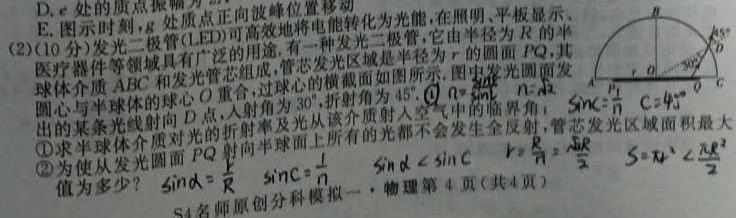 D. e 处的质点振幅为 2A
E. 图示时刻,g 处质点正向波峰位置移动
(2)(10 分)发光二极管(LED)可高效地将电能转化为光能,在照明、平板显示、
医疗器件等领域具有广泛的用途.有一种发光二极管,它由半径为 R 的半
球体介质 ABC 和发光管芯组成,管芯发光区域是半径为 r 的圆面 PQ,其
圆心与半球体的球心 O 重合,过球心的横截面如图所示.图中发光圆面发
出的某条光线射向 D 点,入射角为 30°,折射角为 45°.
①求半球体介质对光的折射率及光从该介质射入空气中的临界角;
②为使从发光圆面 PQ 射向半球面上所有的光都不会发生全反射,管芯发光区域面积最大
值为多少?
B
45°
D
30°
A P r O Q C
① n= n=√2
sinC=1/n C=45°
sinα=r/R sinC=1/n sinα<sinC r=R/n=√2R/2 S=πr²<πR²/2
S4名师原创分科模拟一·物理第 4 页(共4页)